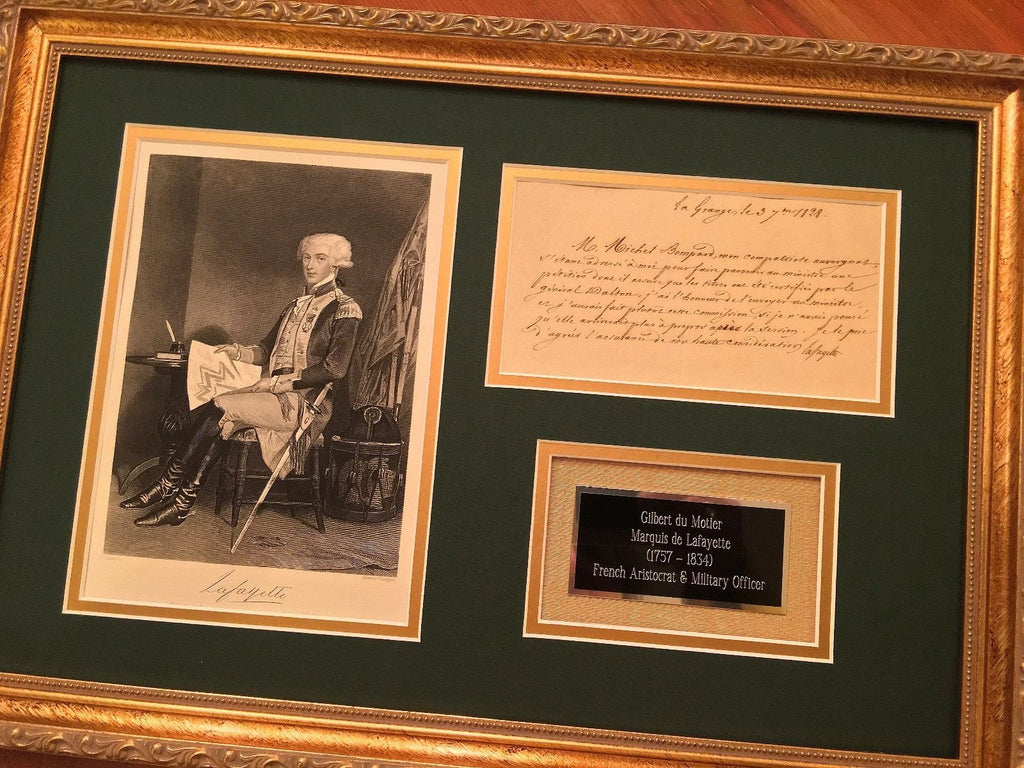 Lafayette
La Grange, le 3 7bre 1828.
M. Michel Bompard, mon compatriote auvergnat,
s'étant adressé à moi pour faire parvenir au ministre une
pétition dont il assure que les titres ont été certifiés par le
général Dalton, j'ai l'honneur de l'envoyer au ministre,
et j'aurais fait plutot cette commission si je n'avais pensé
qu'elle arriverait plus à propos après la session. Je le prie
d'agréer l'assurance de ma haute considération, Lafayette
Gilbert du Motier
Marquis de Lafayette
(1757 – 1834)
French Aristocrat & Military Officer